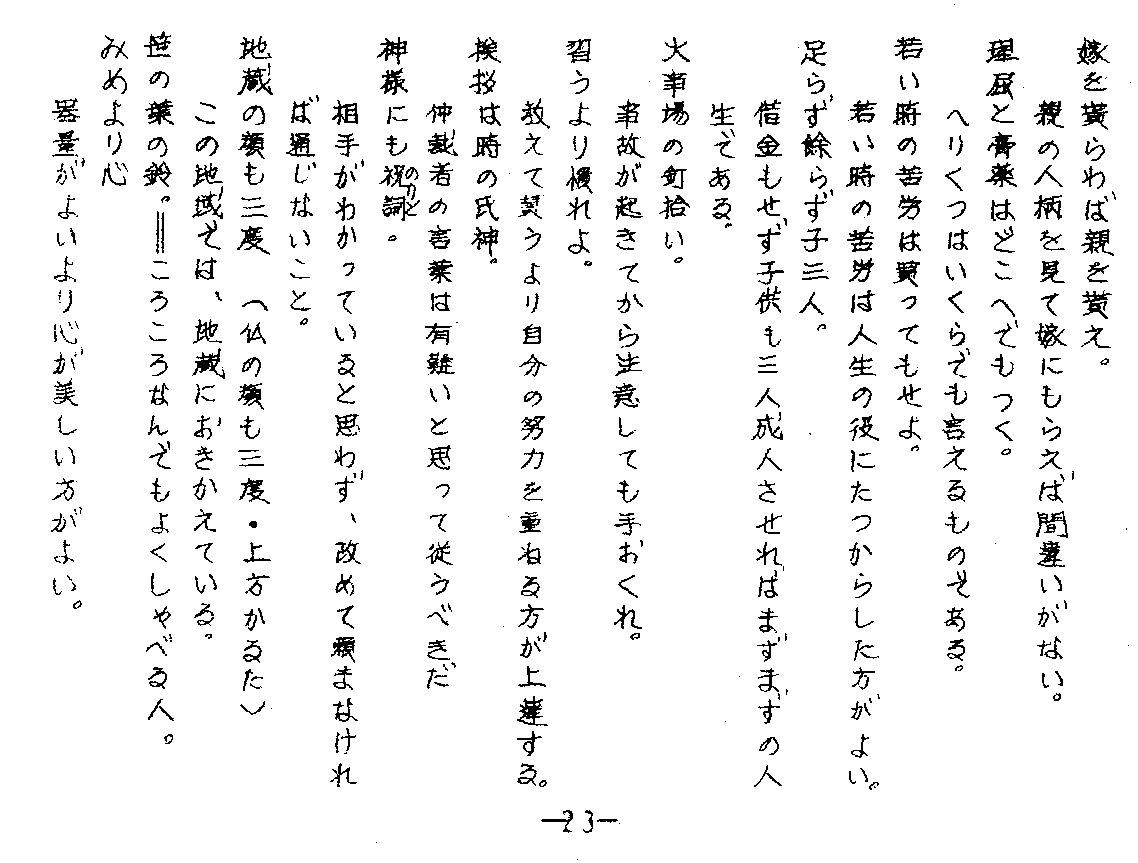 嫁を貰らわば親を貰え。
親の人柄を見て嫁にもらえば間違いがない。
理屈と膏薬はどこへでもつく。
へりくつはいくらでも言えるものである。
若い時の苦労は買ってもせよ。
若い時の苦労は人生の役にたつからした方がよい。
足らず余らず子三人。
借金もせず子供も三人成人させればまずまずの人
生である。
火事場の釘拾い。
事故が起きてから注意しても手おくれ。
習うより慣れよ。
教えて貰うより自分の努力を重ねる方が上達する。
挨拶は時の氏神。
仲裁者の言葉は有難いと思って従うべきだ
神様にも祝詞。
のりと
相手がわかっていると思わず、改めて頼まなけれ
ば通じないこと。
地蔵の顔も三度 (仏の顔も三度・上方かるた)
この地域では、地蔵におきかえている。
笹の葉の鈴。＝ころころなんでもよくしゃべる人。
みめより心
器量がよいより心が美しい方がよい。
—23—